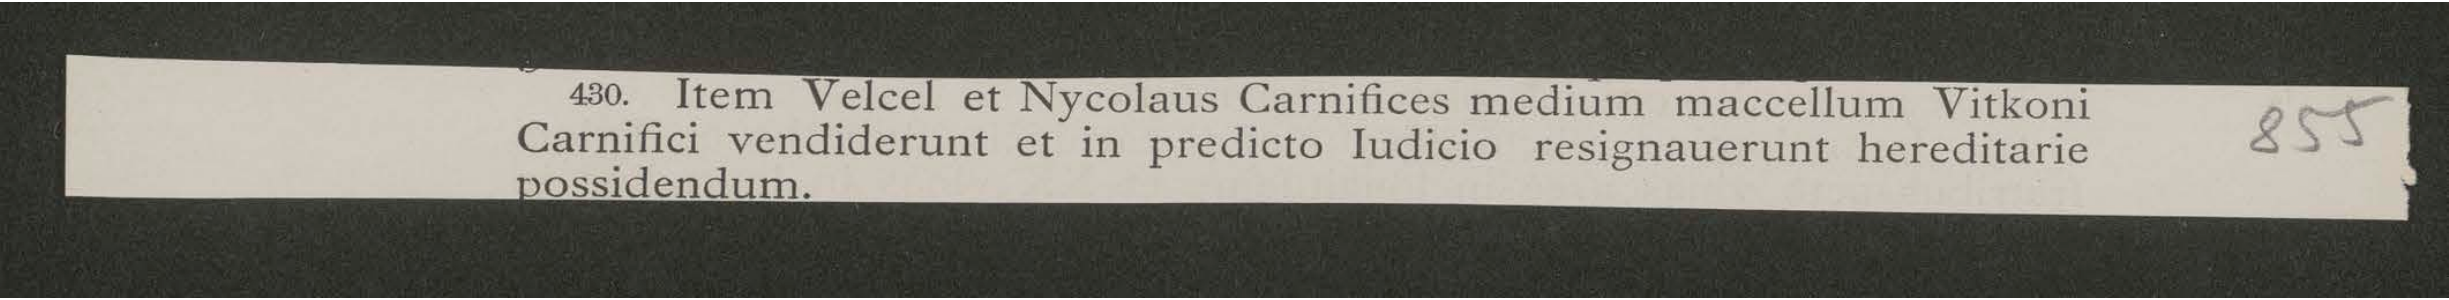 430. Item Velcel et Nycolaus Carnifices medium maccellum Vitkoni
Carnifici vendiderunt et in predicto Iudicio resignauerunt hereditarie
possidendum.
855